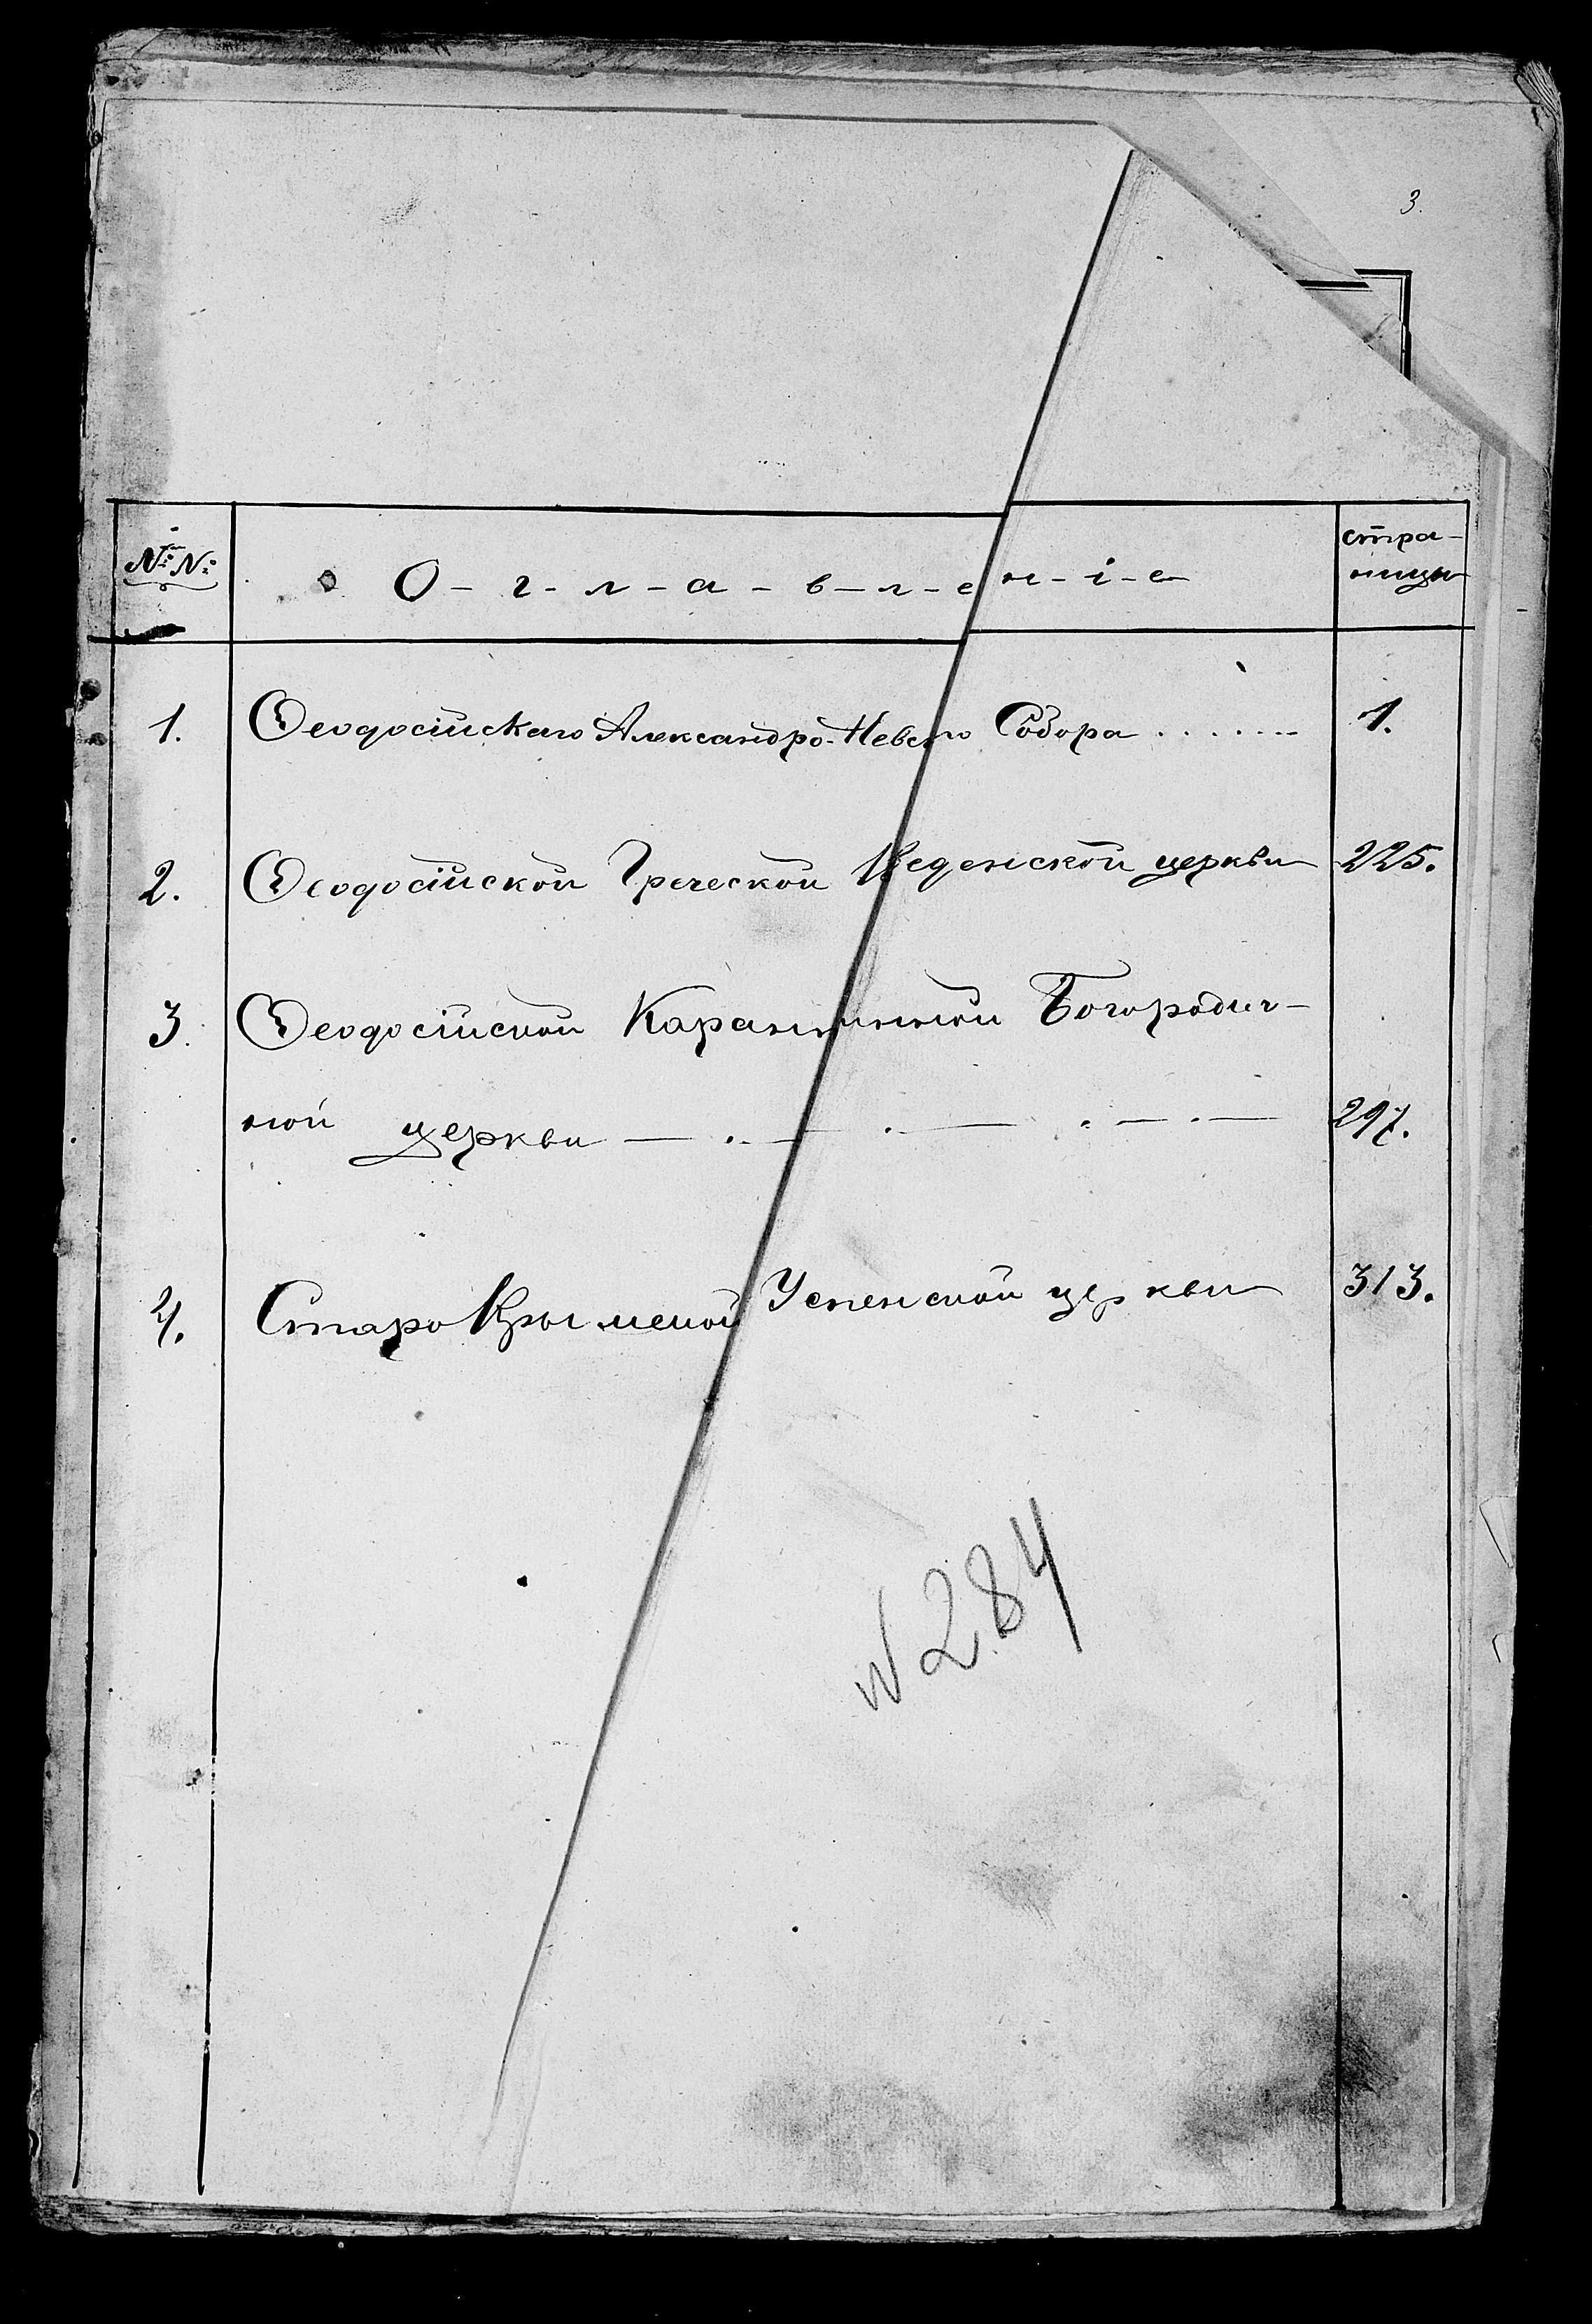 3.
№ №
О-г-л-а-в-л-е-н-і-е
стра-
ницы
1. Ѳеодосійскаго Александро-Невскго Собора ........ 1.
2. Ѳеодосійской Греческой Введенской церкви 225.
3. Ѳеодосійской Карантинной Богородич-
ной церкви — . — . — . — . — 297.
4. Старо Крымской Успенской церкви 313.
N 284